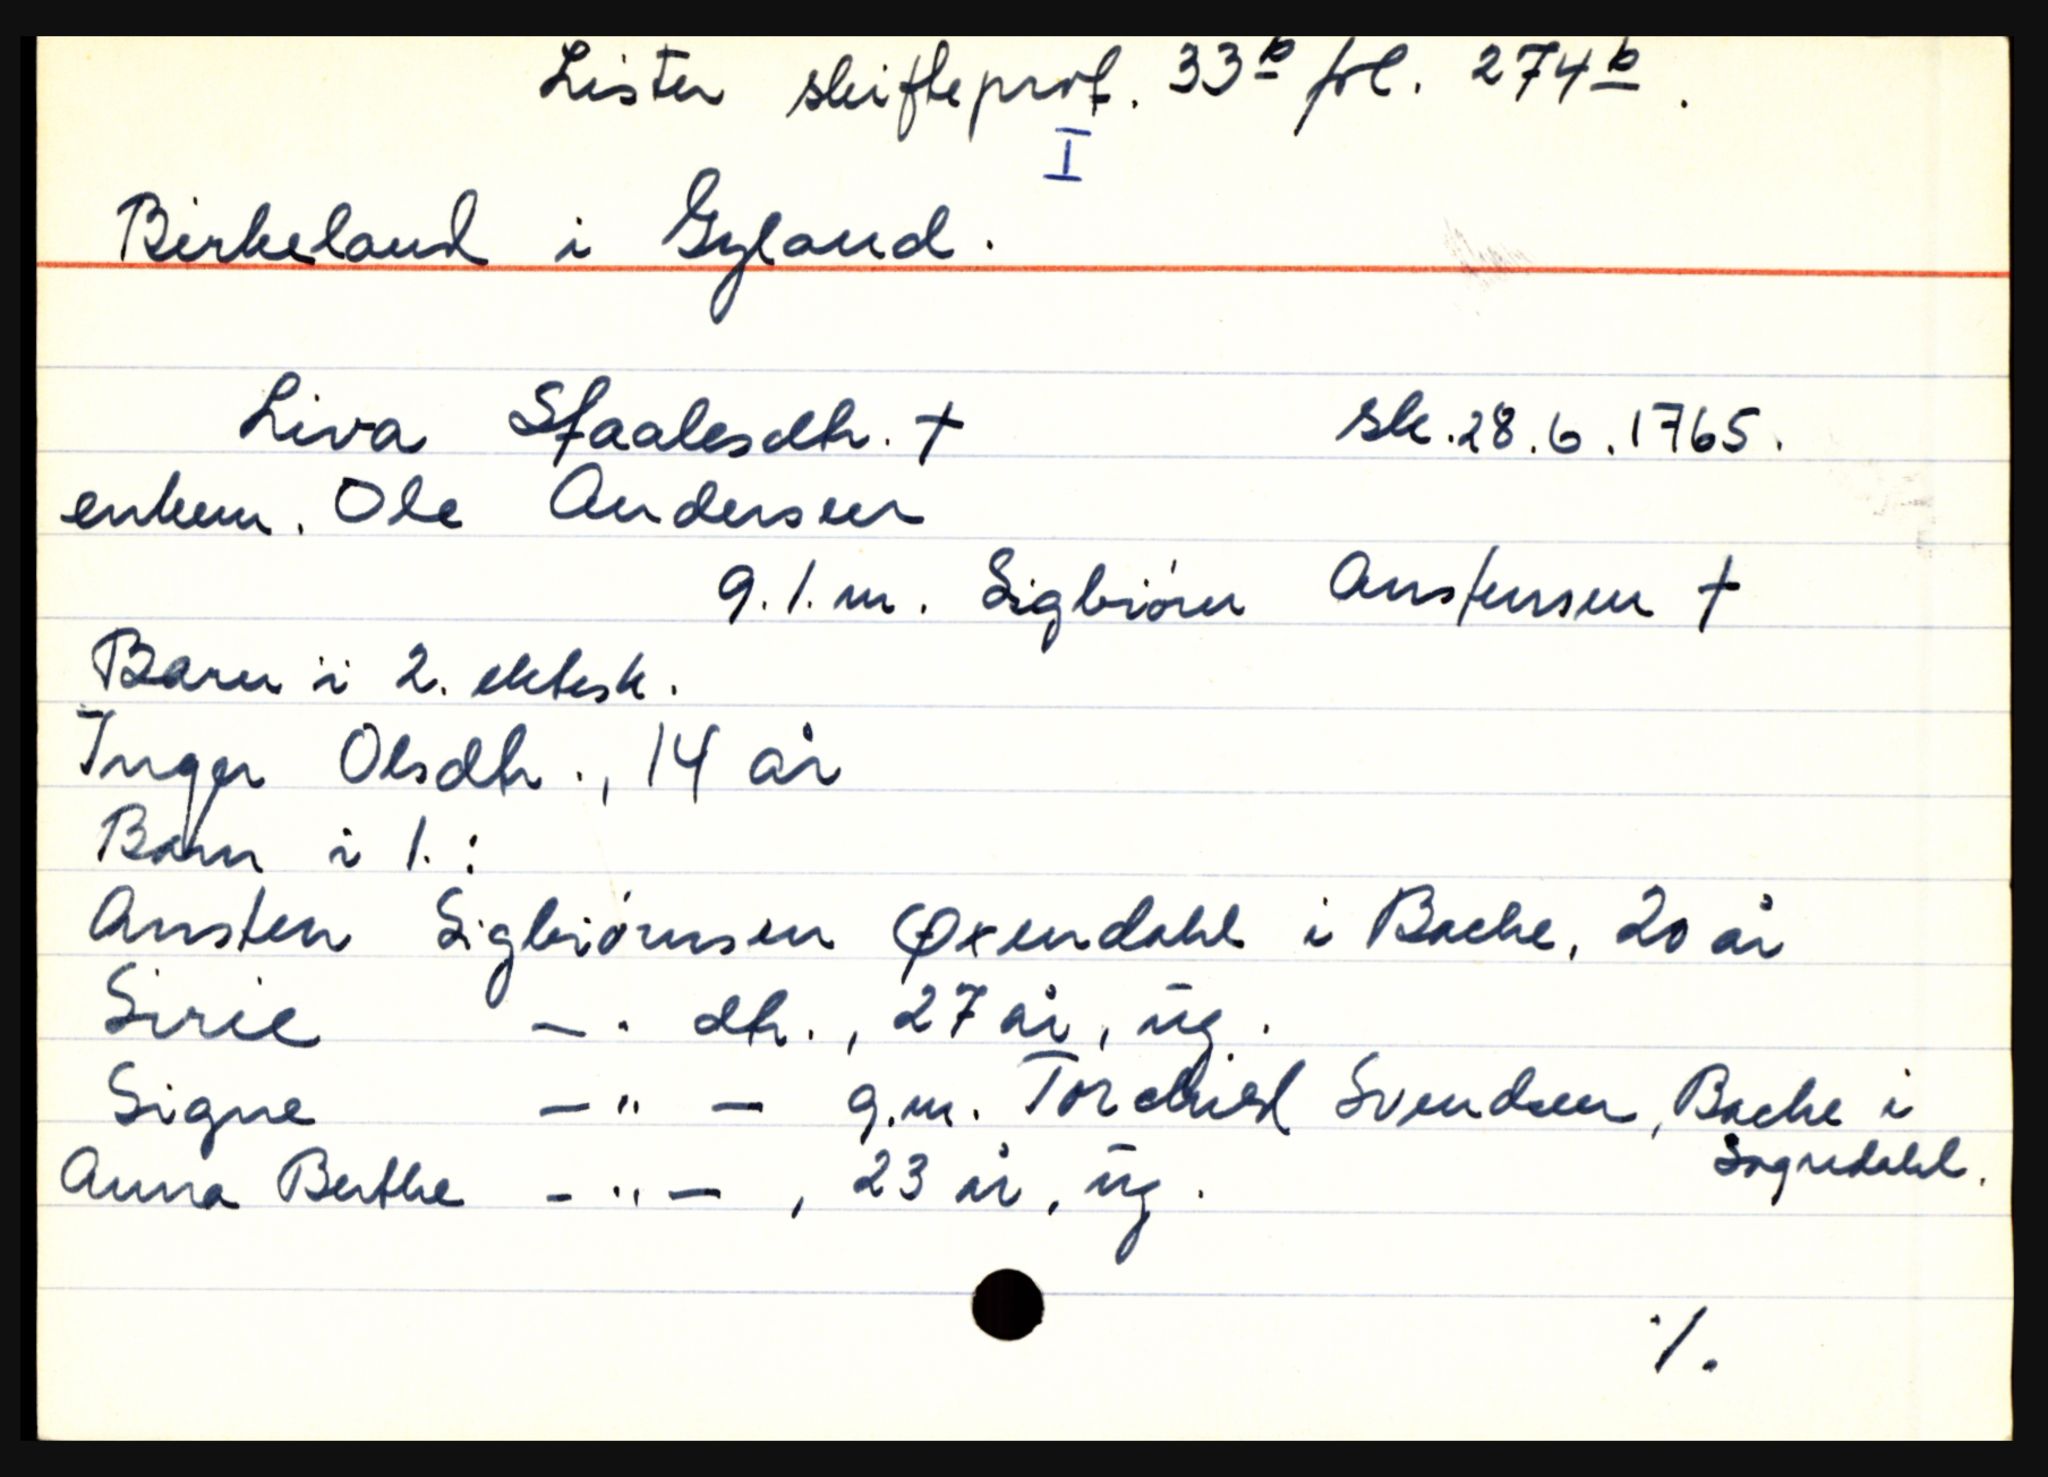 Lister skifteprot. 33b fol. 274b.
I
Birkeland i Gyland.
Liva Staalesdtr. † sk. 28.6.1765.
enkem. Ole Andersen
g. 1. m. Sigbiørn Anstensen †
Barn i 2. ektesk.
Inger Olsdtr., 14 år
Barn i 1.:
Ansten Sigbiørnsen Øxendahl i Bache, 20 år
Sirie — . dtr., 27 år, ug.
Signe — " — g.m. Torchild Svendsen, Bache i
Sogndahl.
Anna Berthe - " — , 23 år, ug.
./.